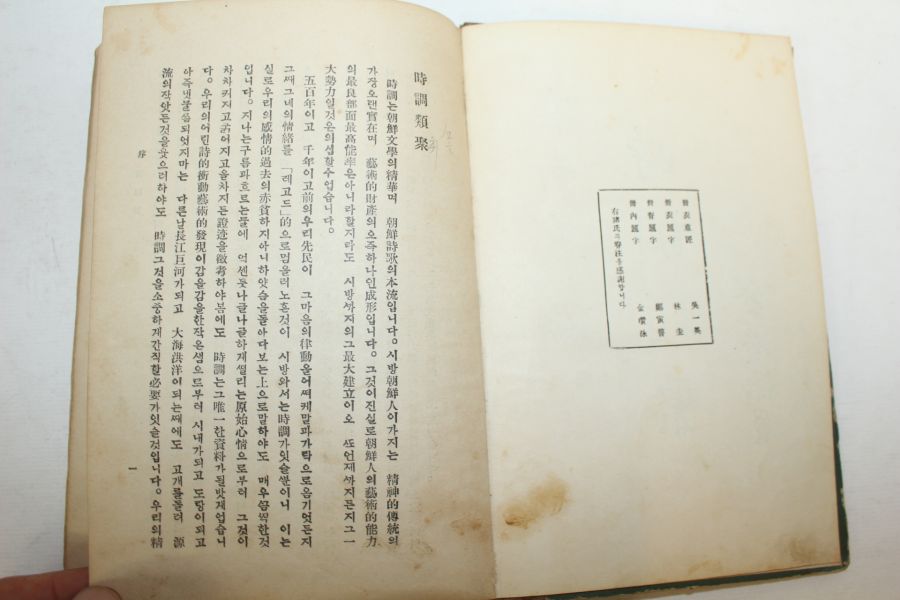 冊表意匠 吳一英
冊表題字 林圭
冊脊題字 鄭寅普
冊內題字 金瓚泳
右諸氏의眷注를感謝합니다
時調類聚
時調는朝鮮文學의精華며 朝鮮詩歌의本流입니다。시방朝鮮人이가지는 精神的傳統의
가장오랜實在며 藝術的財產의으즉하나인成形입니다。그것이진실로朝鮮人의藝術的能力
의最良部面最高能率은아니라할지라도 시방ᄭᅡ지의그最大建立이오 ᄯᅩ언제ᄭᅡ지든지그一
大勢力일것은의심할수업습니다。
五百年이고 千年이고前의우리先民이 그마음의律動을어ᄯᅥ케말과가락으로옴기엇든지
그ᄯᅢ그네의情緖를「레고드」的으로멈을러노흔것이 시방와서는時調가잇슬ᄲᅮᆫ이니 이는
실로우리의感情的過去의赤貧하지아니하얏슴을돌아다보는上으로말하야도 매우ᄭᅳᆷ찍한것
입니다。지나는구름과흐르는물에 억센듯나글나글하게ᄯᅥᆯ리는原始心情으로부터 그것이
차차커지고굵어지고올차지든證迹을徵考하야봄에도 時調는그唯一한資料가될밧게업습니
다。우리의어린詩的衝動藝術的發現이감을감을한작은샘으로부터 시내가되고 도랑이되고
아즉냇물ᄶᅳᆷ되엇지마는 다른날長江巨河가되고 大海洪洋이되는ᄯᅢ에도 고개를돌려 源
流의작앗든것을웃으려하야도 時調그것을소중하게간직할必要가잇슬것입니다。우리의精
序
一